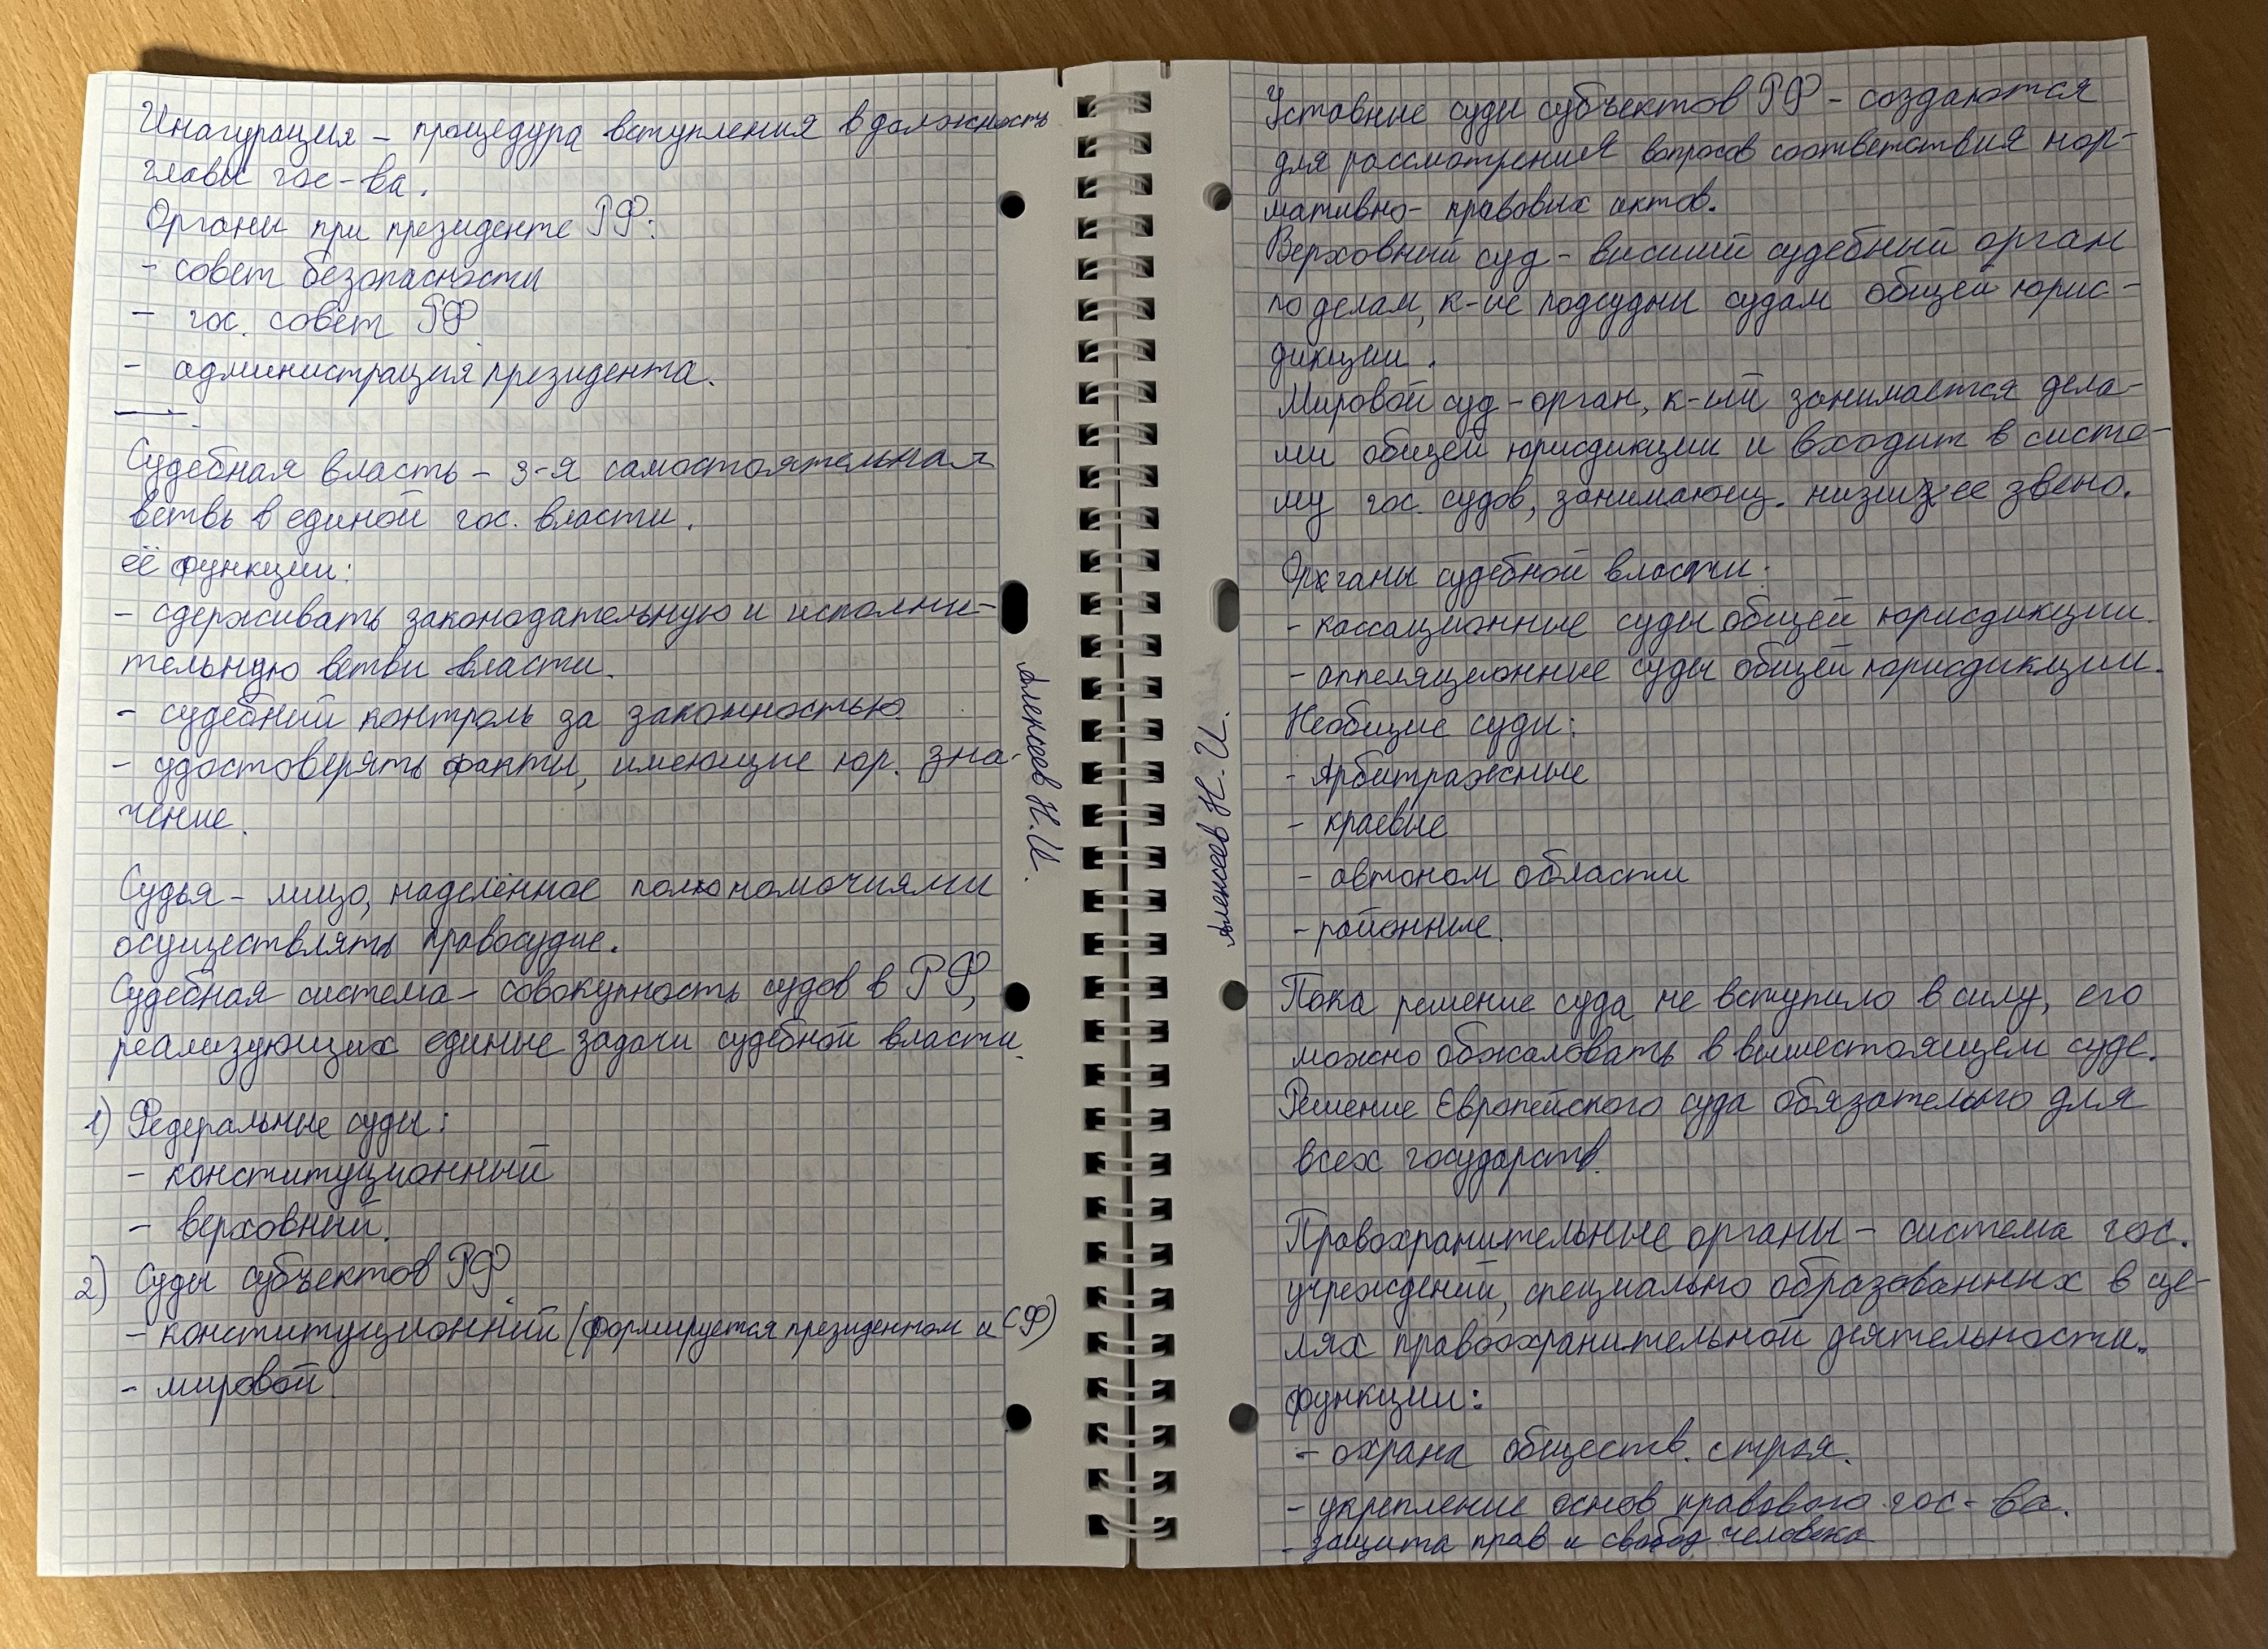 Инагурация – процедура вступления в должность
главы гос-ва.
Органы при президенте РФ:
- совет безопасности
- гос. совет РФ
- администрация президента.
Судебная власть – 3-я самостоятельная
ветвь в единой гос. власти.
её функции:
- сдерживать законодательную и исполни-
тельную ветви власти.
- судебный контроль за законностью
- удостоверять факты, имеющие юр. зна-
чение.
Судья – лицо, наделённое полономочиями
осуществлять правосудие.
Судебная система – совокупность судов в РФ,
реализующих единые задачи судебной власти.
1) Федеральные суды:
- конституционный
- верховный.
2) Суды субъектов РФ
- конституционный (формируется президентом и СФ)
- мировой.
Алексеев Н. И.
Алексеев Н. И.
Уставные суды субъектов РФ – создаются
для рассмотрения вопросов соответствия нор-
мативно-правовых актов.
Верховный суд – высший судебный орган
по делам, к-ые подсудны судам общей юрис-
дикции.
Мировой суд – орган, к-ый занимается дела-
ми общей юрисдикции и входит в систе-
му гос. судов, занимающ. низшее звено.
Органы судебной власти:
- кассационные суды общей юрисдикции.
- аппеляционные суды общей юрисдикции.
Необщие суды:
- Арбитражные
- краевые
- автоном области
- районные.
Пока решение суда не вступило в силу, его
можно обжаловать в вышестоящем суде.
Решение Европейского суда обязательно для
всех государств.
Правохранительные органы – система гос.
учреждений, специально образованных в це-
лях правоохранительной деятельности.
функции:
- охрана обществ. строя.
- укрепление основ правового гос-ва.
- защита прав и свобод человека